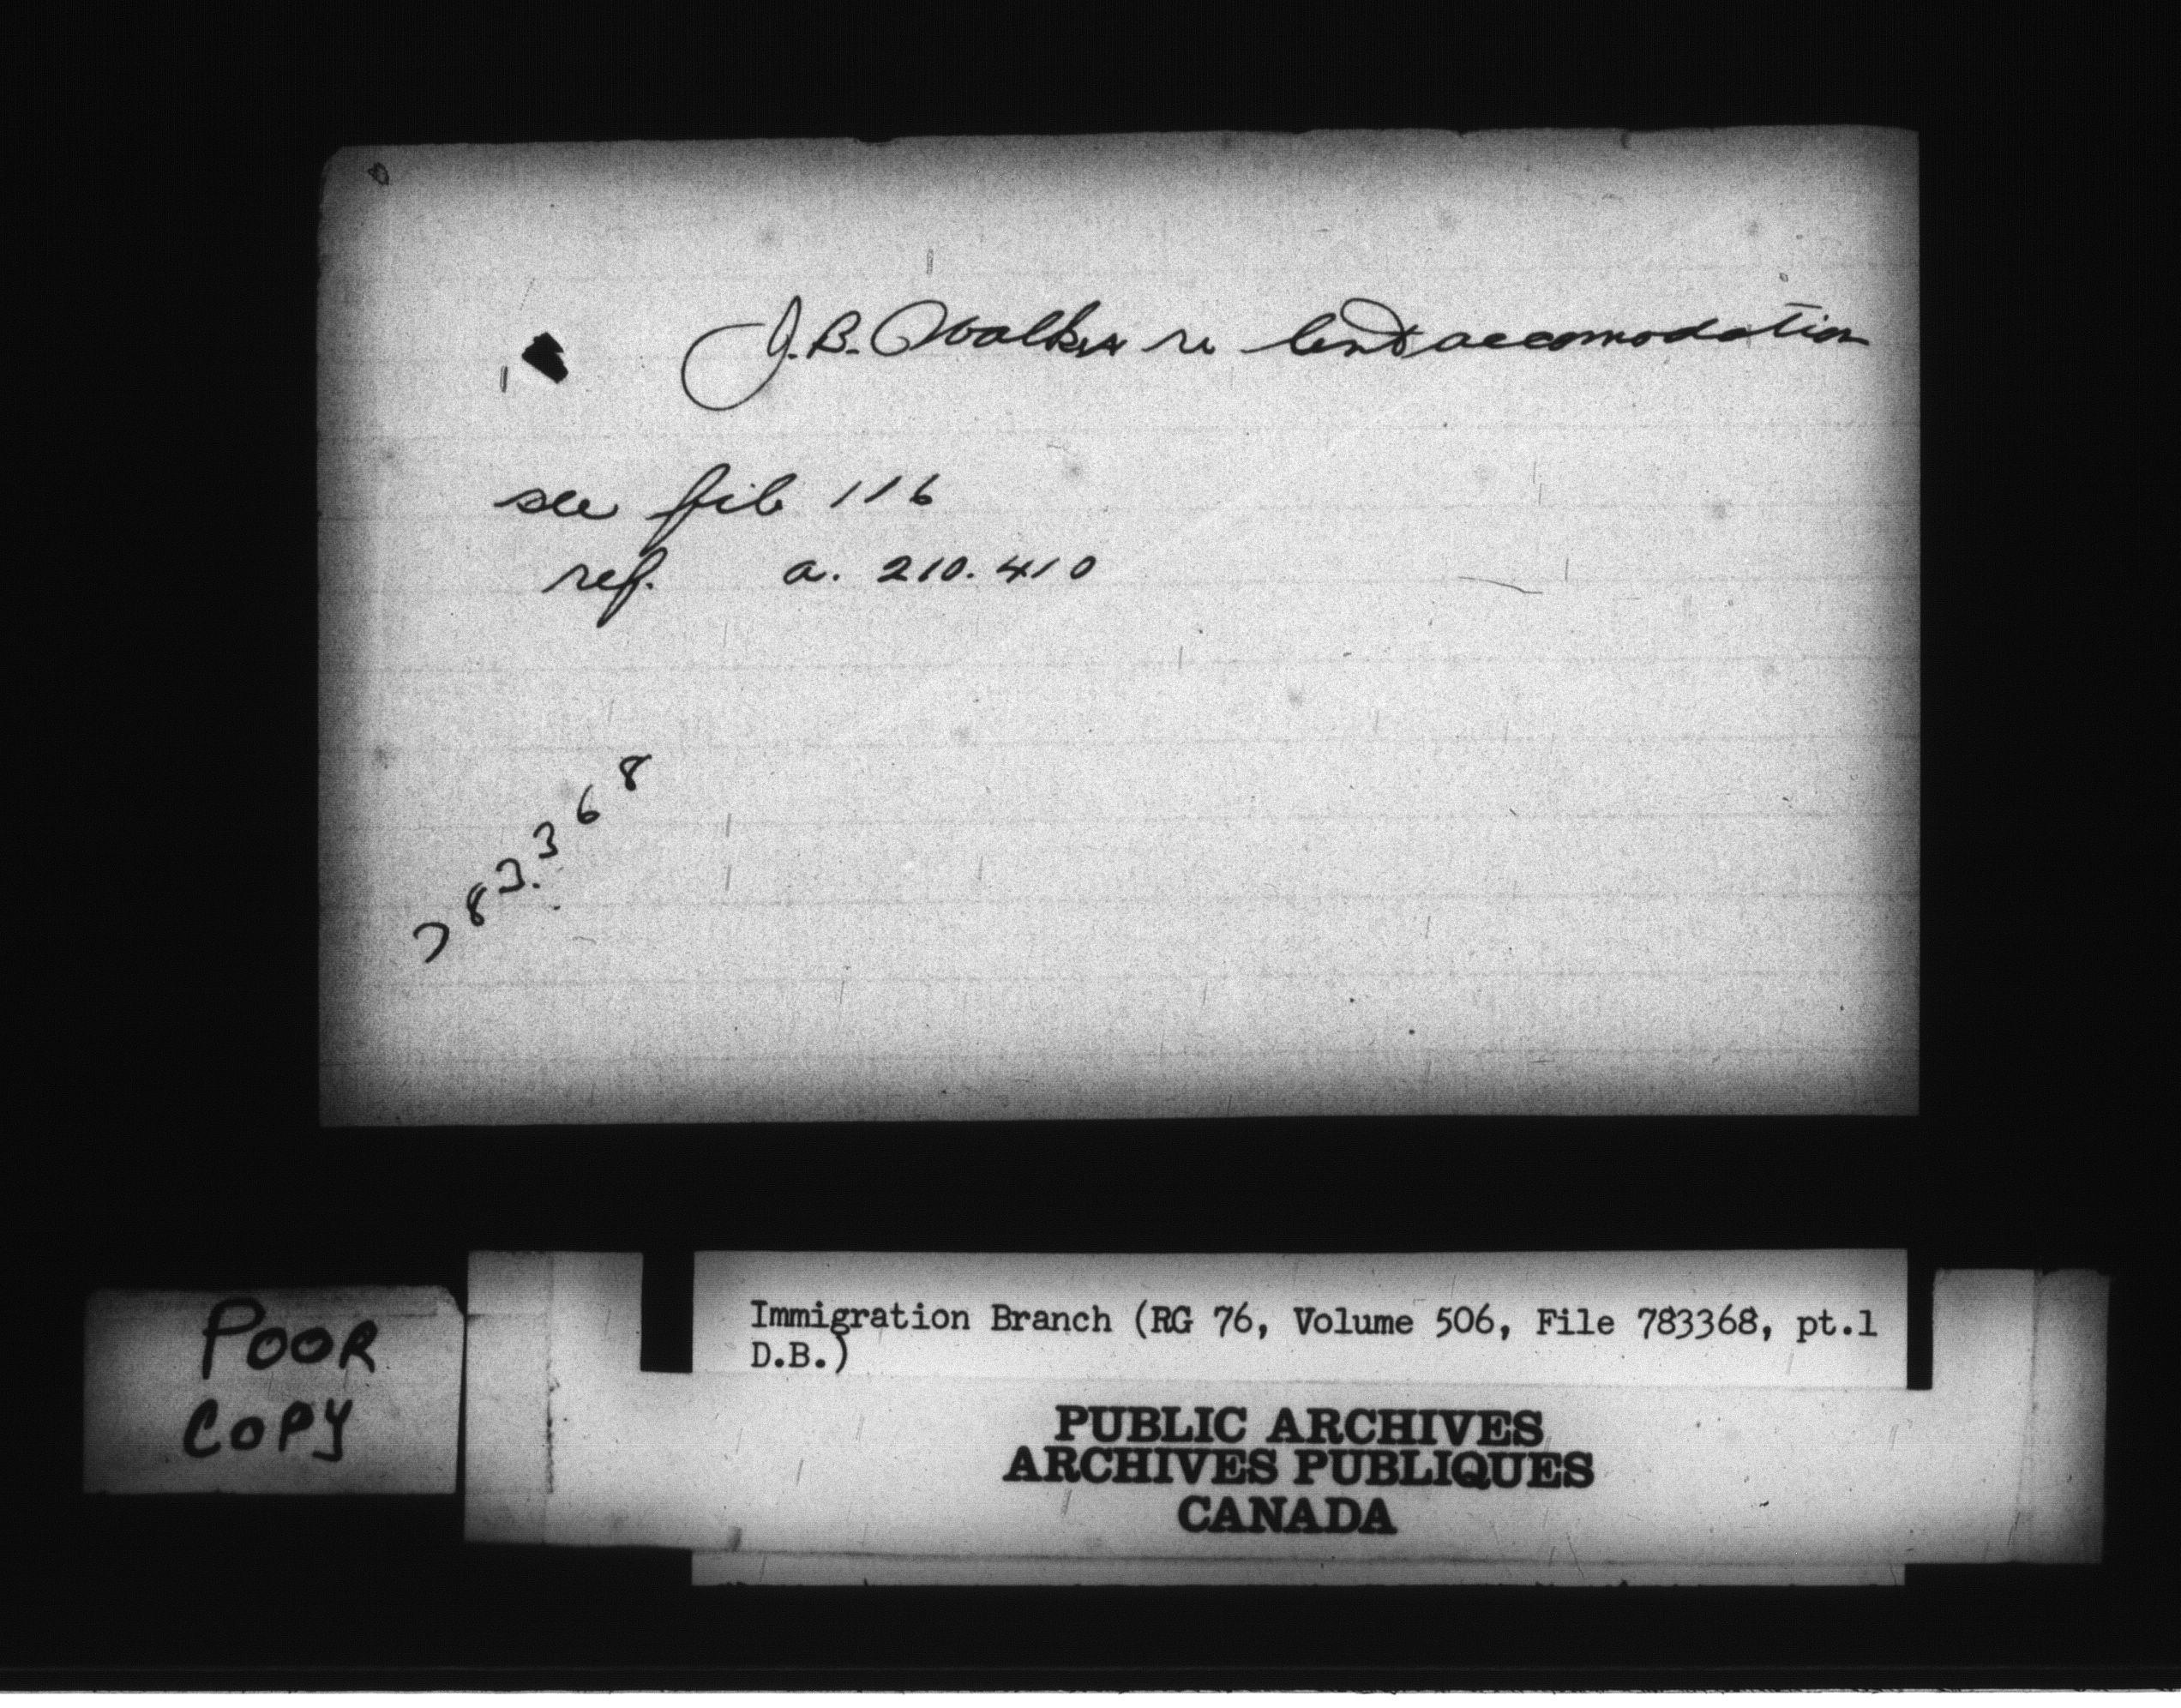 J. B. Walker re tent accomodation
see file 116
ref. a. 210.410
783.368
POOR
COPY
Immigration Branch (RG 76, Volume 506, File 783368, pt.1
D.B.)
PUBLIC ARCHIVES
ARCHIVES PUBLIQUES
CANADA